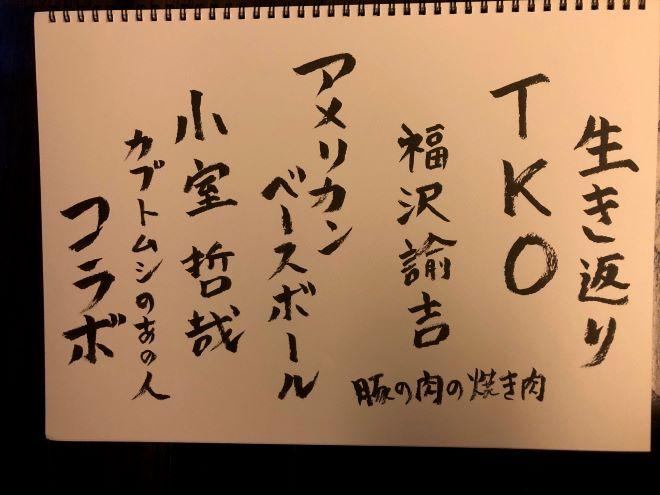 生き返り
TKO
福沢諭吉
豚の肉の焼き肉
アメリカン
ベースボール
小室哲哉
カブトムシのあの人
コラボ